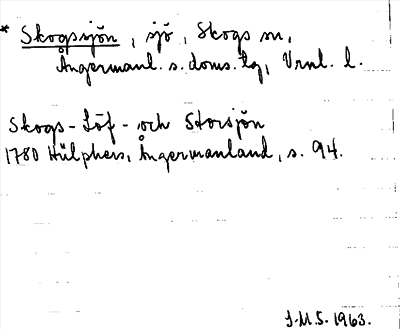 * Skogssjön, sjö, Skogs sn,
Ångermanl. s. doms. lg, Vrnl. l.
Skogs- Löf- och Storsjön
1780 Hülphers, Ångermanland, s. 94.
J.M.S. 1963.